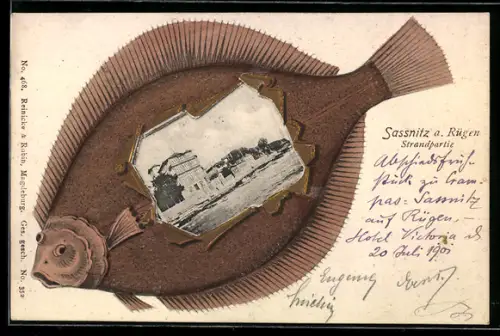 No. 468, Reinicke & Rubin, Magdeburg. Ges. gesch. No. 350
Sassnitz a. Rügen
Strandpartie
Abschiedsfrüh-
stück zu Cram-
pas-Sassnitz
auf Rügen. -
Hotel Victoria d.
20 Juli 1901